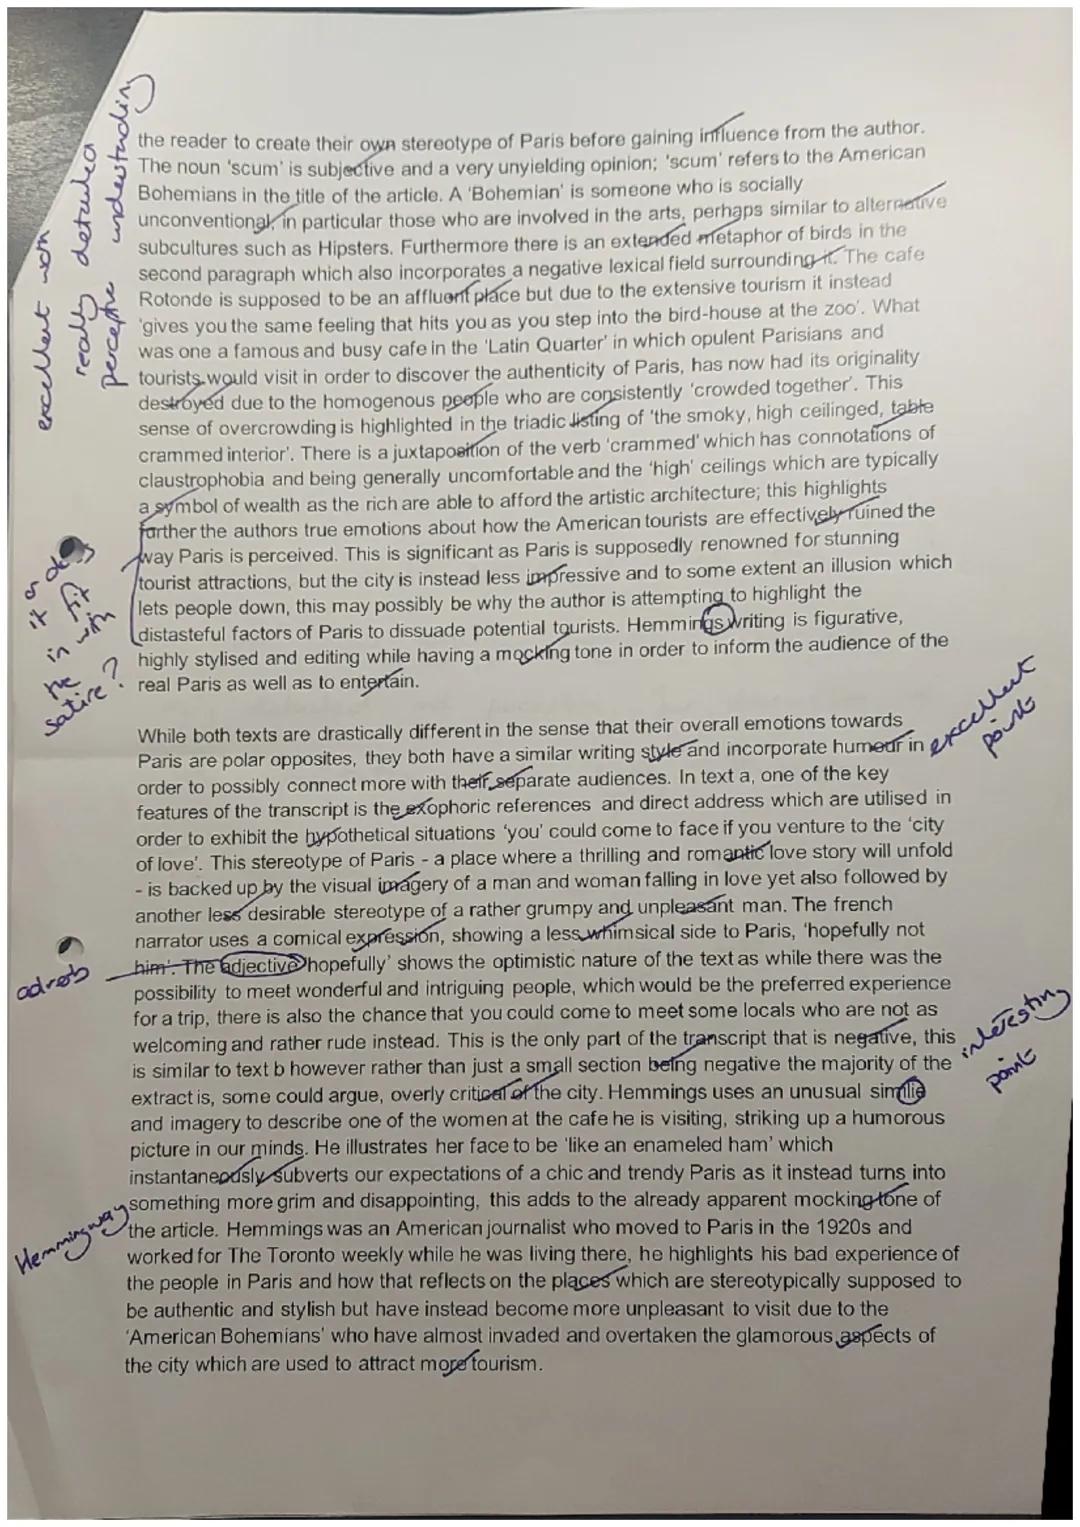 excellent work
really detailed
perceptive understanding
the reader to create their own stereotype of Paris before gaining influence from the author.
The noun 'scum' is subjective and a very unyielding opinion; 'scum' refers to the American
Bohemians in the title of the article. A 'Bohemian' is someone who is socially
unconventional, in particular those who are involved in the arts, perhaps similar to alternative
subcultures such as Hipsters. Furthermore there is an extended metaphor of birds in the
second paragraph which also incorporates a negative lexical field surrounding it. The cafe
Rotonde is supposed to be an affluent place but due to the extensive tourism it instead
'gives you the same feeling that hits you as you step into the bird-house at the zoo'. What
was one a famous and busy cafe in the 'Latin Quarter' in which opulent Parisians and
tourists would visit in order to discover the authenticity of Paris, has now had its originality
destroyed due to the homogenous people who are consistently 'crowded together'. This
sense of overcrowding is highlighted in the triadic listing of 'the smoky, high ceilinged, table
crammed interior'. There is a juxtaposition of the verb 'crammed' which has connotations of
claustrophobia and being generally uncomfortable and the 'high' ceilings which are typically
a symbol of wealth as the rich are able to afford the artistic architecture; this highlights
further the authors true emotions about how the American tourists are effectively ruined the
way Paris is perceived. This is significant as Paris is supposedly renowned for stunning
tourist attractions, but the city is instead less impressive and to some extent an illusion which
lets people down, this may possibly be why the author is attempting to highlight the
distasteful factors of Paris to dissuade potential tourists. Hemmings writing is figurative,
highly stylised and editing while having a mocking tone in order to inform the audience of the
real Paris as well as to entertain.
fit
in with
the
satire?
While both texts are drastically different in the sense that their overall emotions towards
Paris are polar opposites, they both have a similar writing style and incorporate humour in
excellent
points
order to possibly connect more with their separate audiences. In text a, one of the key
features of the transcript is the exophoric references and direct address which are utilised in
order to exhibit the hypothetical situations 'you' could come to face if you venture to the 'city
of love'. This stereotype of Paris - a place where a thrilling and romantic love story will unfold
- is backed up by the visual imagery of a man and woman falling in love yet also followed by
another less desirable stereotype of a rather grumpy and unpleasant man. The french
narrator uses a comical expression, showing a less whimsical side to Paris, 'hopefully not
him'. The adjective 'hopefully' shows the optimistic nature of the text as while there was the
possibility to meet wonderful and intriguing people, which would be the preferred experience
for a trip, there is also the chance that you could come to meet some locals who are not as
welcoming and rather rude instead. This is the only part of the transcript that is negative, this
interesting
point
is similar to text b however rather than just a small section being negative the majority of the
extract is, some could argue, overly critical of the city. Hemmings uses an unusual simlie
and imagery to describe one of the women at the cafe he is visiting, striking up a humorous
picture in our minds. He illustrates her face to be 'like an enameled ham' which
instantaneously subverts our expectations of a chic and trendy Paris as it instead turns into
something more grim and disappointing, this adds to the already apparent mocking tone of
Hemmingway
the article. Hemmings was an American journalist who moved to Paris in the 1920s and
worked for The Toronto weekly while he was living there, he highlights his bad experience of
the people in Paris and how that reflects on the places which are stereotypically supposed to
be authentic and stylish but have instead become more unpleasant to visit due to the
'American Bohemians' who have almost invaded and overtaken the glamorous aspects of
the city which are used to attract more tourism.